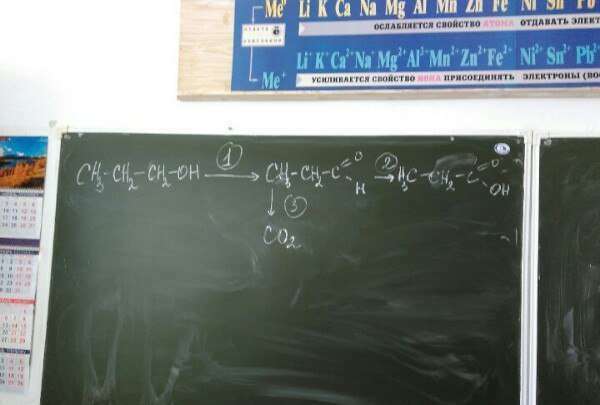 Me⁰ Li K Ca Na Mg Al Mn Zn Fe Ni Sn Pb
ОСЛАБЛЯЕТСЯ СВОЙСТВО АТОМА ОТДАВАТЬ ЭЛЕКТ
Li⁺ K⁺ Ca²⁺ Na⁺ Mg²⁺ Al³⁺ Mn²⁺ Zn²⁺ Fe²⁺ Ni²⁺ Sn²⁺ Pb²
Me⁺ УСИЛИВАЕТСЯ СВОЙСТВО ИОНА ПРИСОЕДИНЯТЬ ЭЛЕКТРОНЫ (ВОС
CH₃-CH₂-CH₂-OH ① → CH₃-CH₂-C=O -H ② → H₃C-CH₂-C=O -OH
↓ ③
CO₂